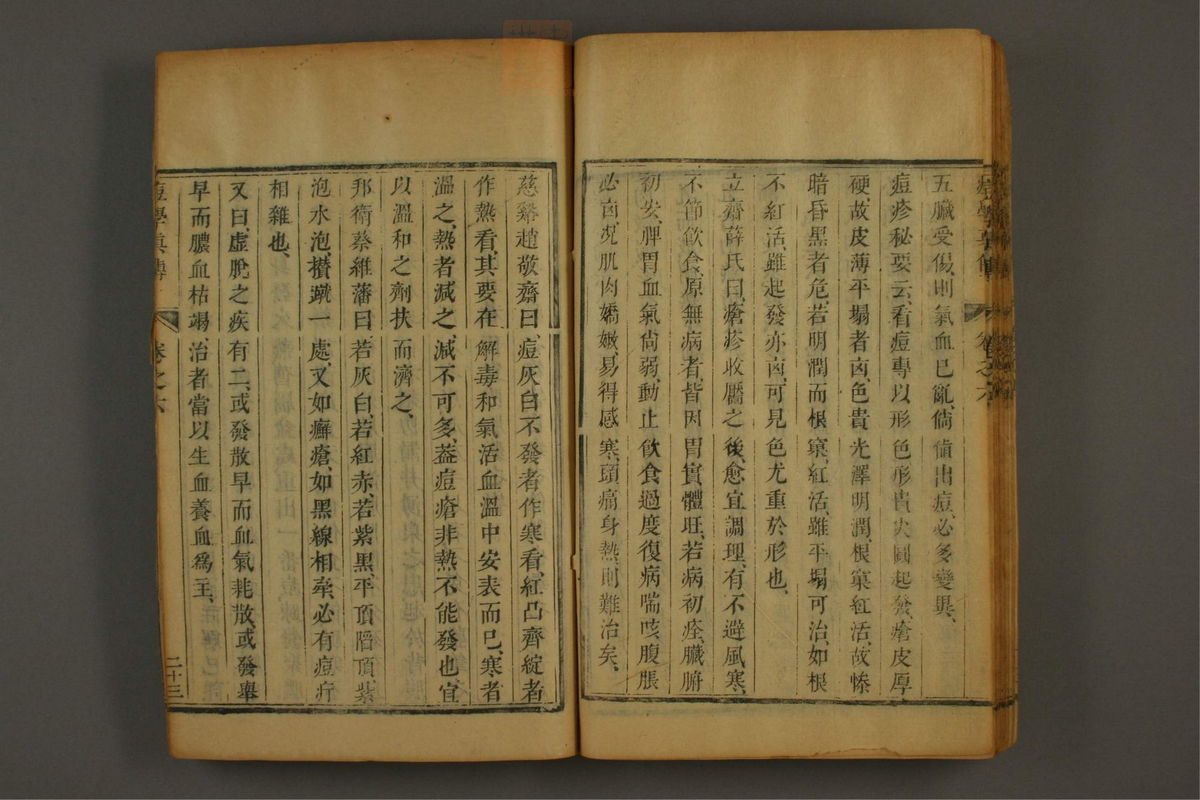 五臟受傷、則氣血已亂、倘値出痘、必多變異、
痘疹秘要云、看痘專以形色、形貴尖圓起發、瘡皮厚
硬、故皮薄平塌者凶、色貴光澤明潤、根窠紅活、故慘
暗昏黑者危、若明潤而根窠紅活、雖平塌可治、如根
不紅活、雖起發亦凶、可見色尤重於形也、
立齋薛氏曰、瘡疹收靨之後、愈宜調理、有不避風寒、
不節飲食、原無病者、皆因胃實體旺、若病初痊、臟腑
初安、脾胃血氣尙弱、動止飲食過度、復病喘咳、腹脹
必凶、况肌肉嬌嫩、易得感寒、頭痛身熱、則難治矣、
痘學眞傳 卷之六
慈谿趙敬齋曰、痘灰白不發者、作寒看、紅凸齊綻者
作熱看、其要在解毒和氣活血、溫中安表而已、寒者
溫之、熱者減之、減不可多、葢痘瘡非熱不能發也、宜
以溫和之劑扶而濟之、
邦衛蔡維藩曰、若灰白、若紅赤、若紫黑平頂陷頂、紫
泡水泡、攅蹴一處、又如癬瘡、如黑線相牽、必有痘疔
相雜也、
又曰、虛脫之疾有二、或發散早而血氣耗散、或發擧
早而膿血枯竭、治者當以生血養血爲主、
痘學眞傳 卷之六 二十三